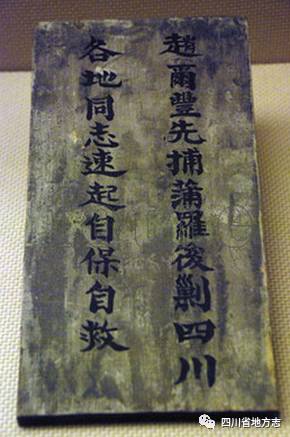 趙爾豐先捕蒲羅後剿四川
各地同志速起自保自救
四川省地方志